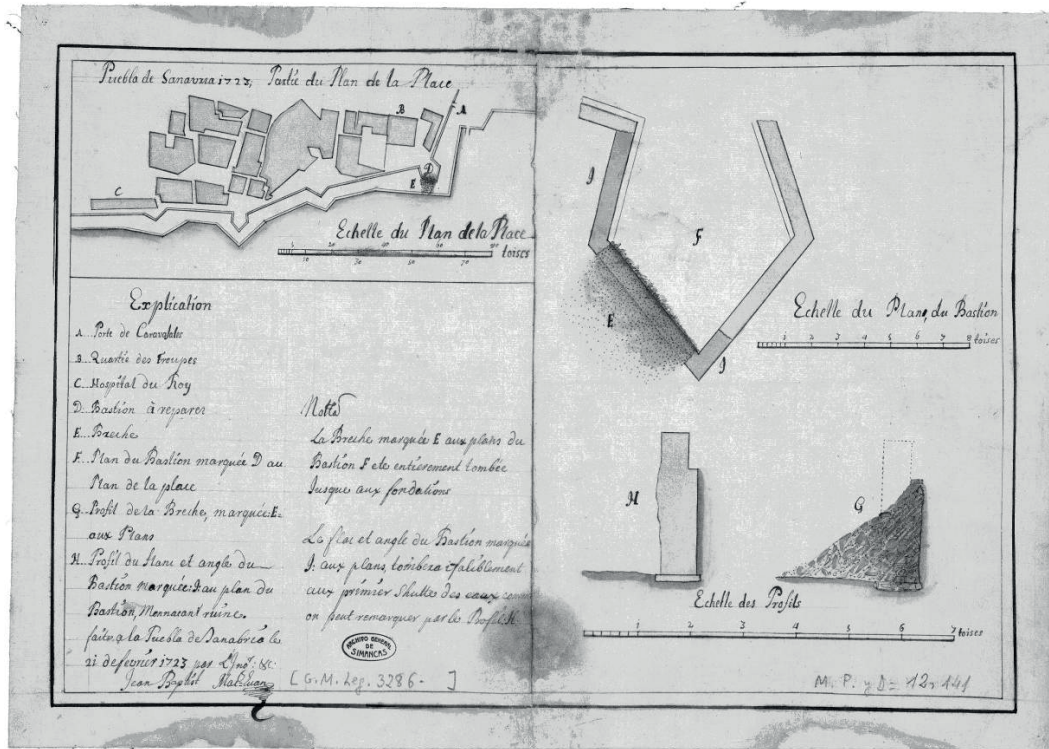 Puebla de Sanavria 1723, Partie du Plan de la Place
A
B
C
D
E
Echelle du Plan de la Place
5 20 40 60 80 toises
10 30 50 70
Explication
A. Porte de
B. Quartié des Troupes
C. Hospital du Roy
D. Bastion à reparer
E. Breche
F. Plan du Bastion marquée D au
Plan de la place
G. Profil de la Breche, marquée E.
aux Plans
H. Profil du flanc et angle du
Bastion marquée J. au plan du
Bastion, Mennacant ruine.
faite a la Puebla de Sanabria le
21 de fevrier 1723 par
Jean Baptist
Notte
La Breche marquée E aux plans du
Bastion F ete entierement tombée
Jusque aux fondations
La flac et angle du Bastion marquée
J. aux plans, tombera ifaliblement
aux primier des eaux comme
on peut remarquer par le Profil H
ARCHIVO GENERAL
DE
SIMANCAS
[G.M. Leg. 3286- ]
J
F
E
J
Echelle du Plane du Bastion
1 2 3 4 5 6 7 8 toises
H
G
Echelle des Profils
1 2 3 4 5 6 7 toises
M. P. y D = 12, 141